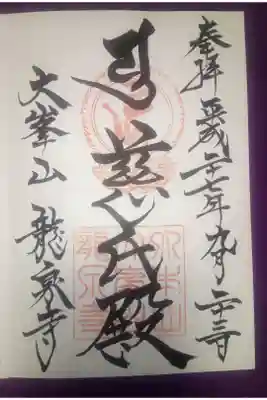 奉拝 平成二十七年九月二十三日
慈氏殿
大峯山 龍泉寺